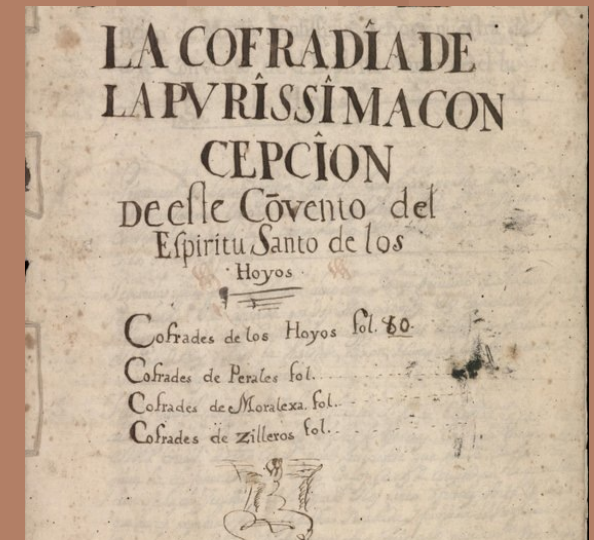 LA COFRADÎA DE
LA PVRÎSSÎMA CON
CEPCÎON
De este Cōvento del
Espiritu Santo de los
Hoyos
Cofrades de los Hoyos fol. 60.
Cofrades de Perales fol.
Cofrades de Moralexa. fol.
Cofrades de Zilleros fol.